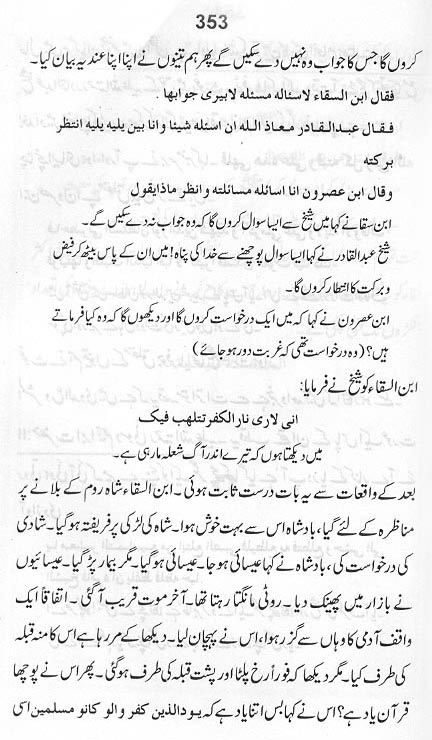 353
کروں گا جس کا جواب وہ نہیں دے سکیں گے پھر ہم تینوں نے اپنا اپنا عندیہ بیان کیا۔
فقال ابن السقاء لاسئاله مسئله لابیری جوابها .
فقال عبدالقادر معاذ الله ان اسئله شیئا وانا بین یلیه یلیه انتظر
برکته
وقال ابن عصرون انا اسائله مسائلته وانظر ماذا یقول
ابن سقا نے کہا میں شیخ سے ایسا سوال کروں گا کہ وہ جواب نہ دے سکیں گے۔
شیخ عبدالقادر نے کہا ایسا سوال پوچھنے سے خدا کی پناہ! میں ان کے پاس بیٹھ کر فیض
و برکت کا انتظار کروں گا۔
ابن عصرون نے کہا کہ میں ایک درخواست کروں گا اور دیکھوں گا کہ وہ کیا فرماتے
ہیں؟ (وہ درخواست تھی کہ غربت دور ہو جائے)
ابن السقاء کو شیخ نے فرمایا:
انی لاری نار الکفر تتلهب فیک
میں دیکھتا ہوں کہ تیرے اندر آگ شعلہ مار رہی ہے۔
بعد کے واقعات سے یہ بات درست ثابت ہوئی۔ ابن السقاء شاہ روم کے بلانے پر
مناظرہ کے لئے گیا، بادشاہ اس سے بہت خوش ہوا۔ شاہ کی لڑکی پر فریفتہ ہو گیا۔ شادی
کی درخواست کی، بادشاہ نے کہا عیسائی ہو جا۔ عیسائی ہو گیا۔ مگر بیمار پڑ گیا۔ عیسائیوں
نے بازار میں پھینک دیا۔ روٹی مانگتا رہتا تھا۔ آخر موت قریب آ گئی۔ اتفاقاً ایک
واقف آدمی کا وہاں سے گزر ہوا، اس نے پہچان لیا۔ دیکھا کے مر رہا ہے اس کا منہ قبلہ
کی طرف کیا۔ مگر دیکھا کہ فوراً رخ پلٹا اور پشت قبلہ کی طرف ہو گئی۔ پھر اس نے پوچھا
قرآن یاد ہے؟ اس نے کہا بس اتنا یاد ہے کہ یود الذین کفر والو کانو مسلمین اسی